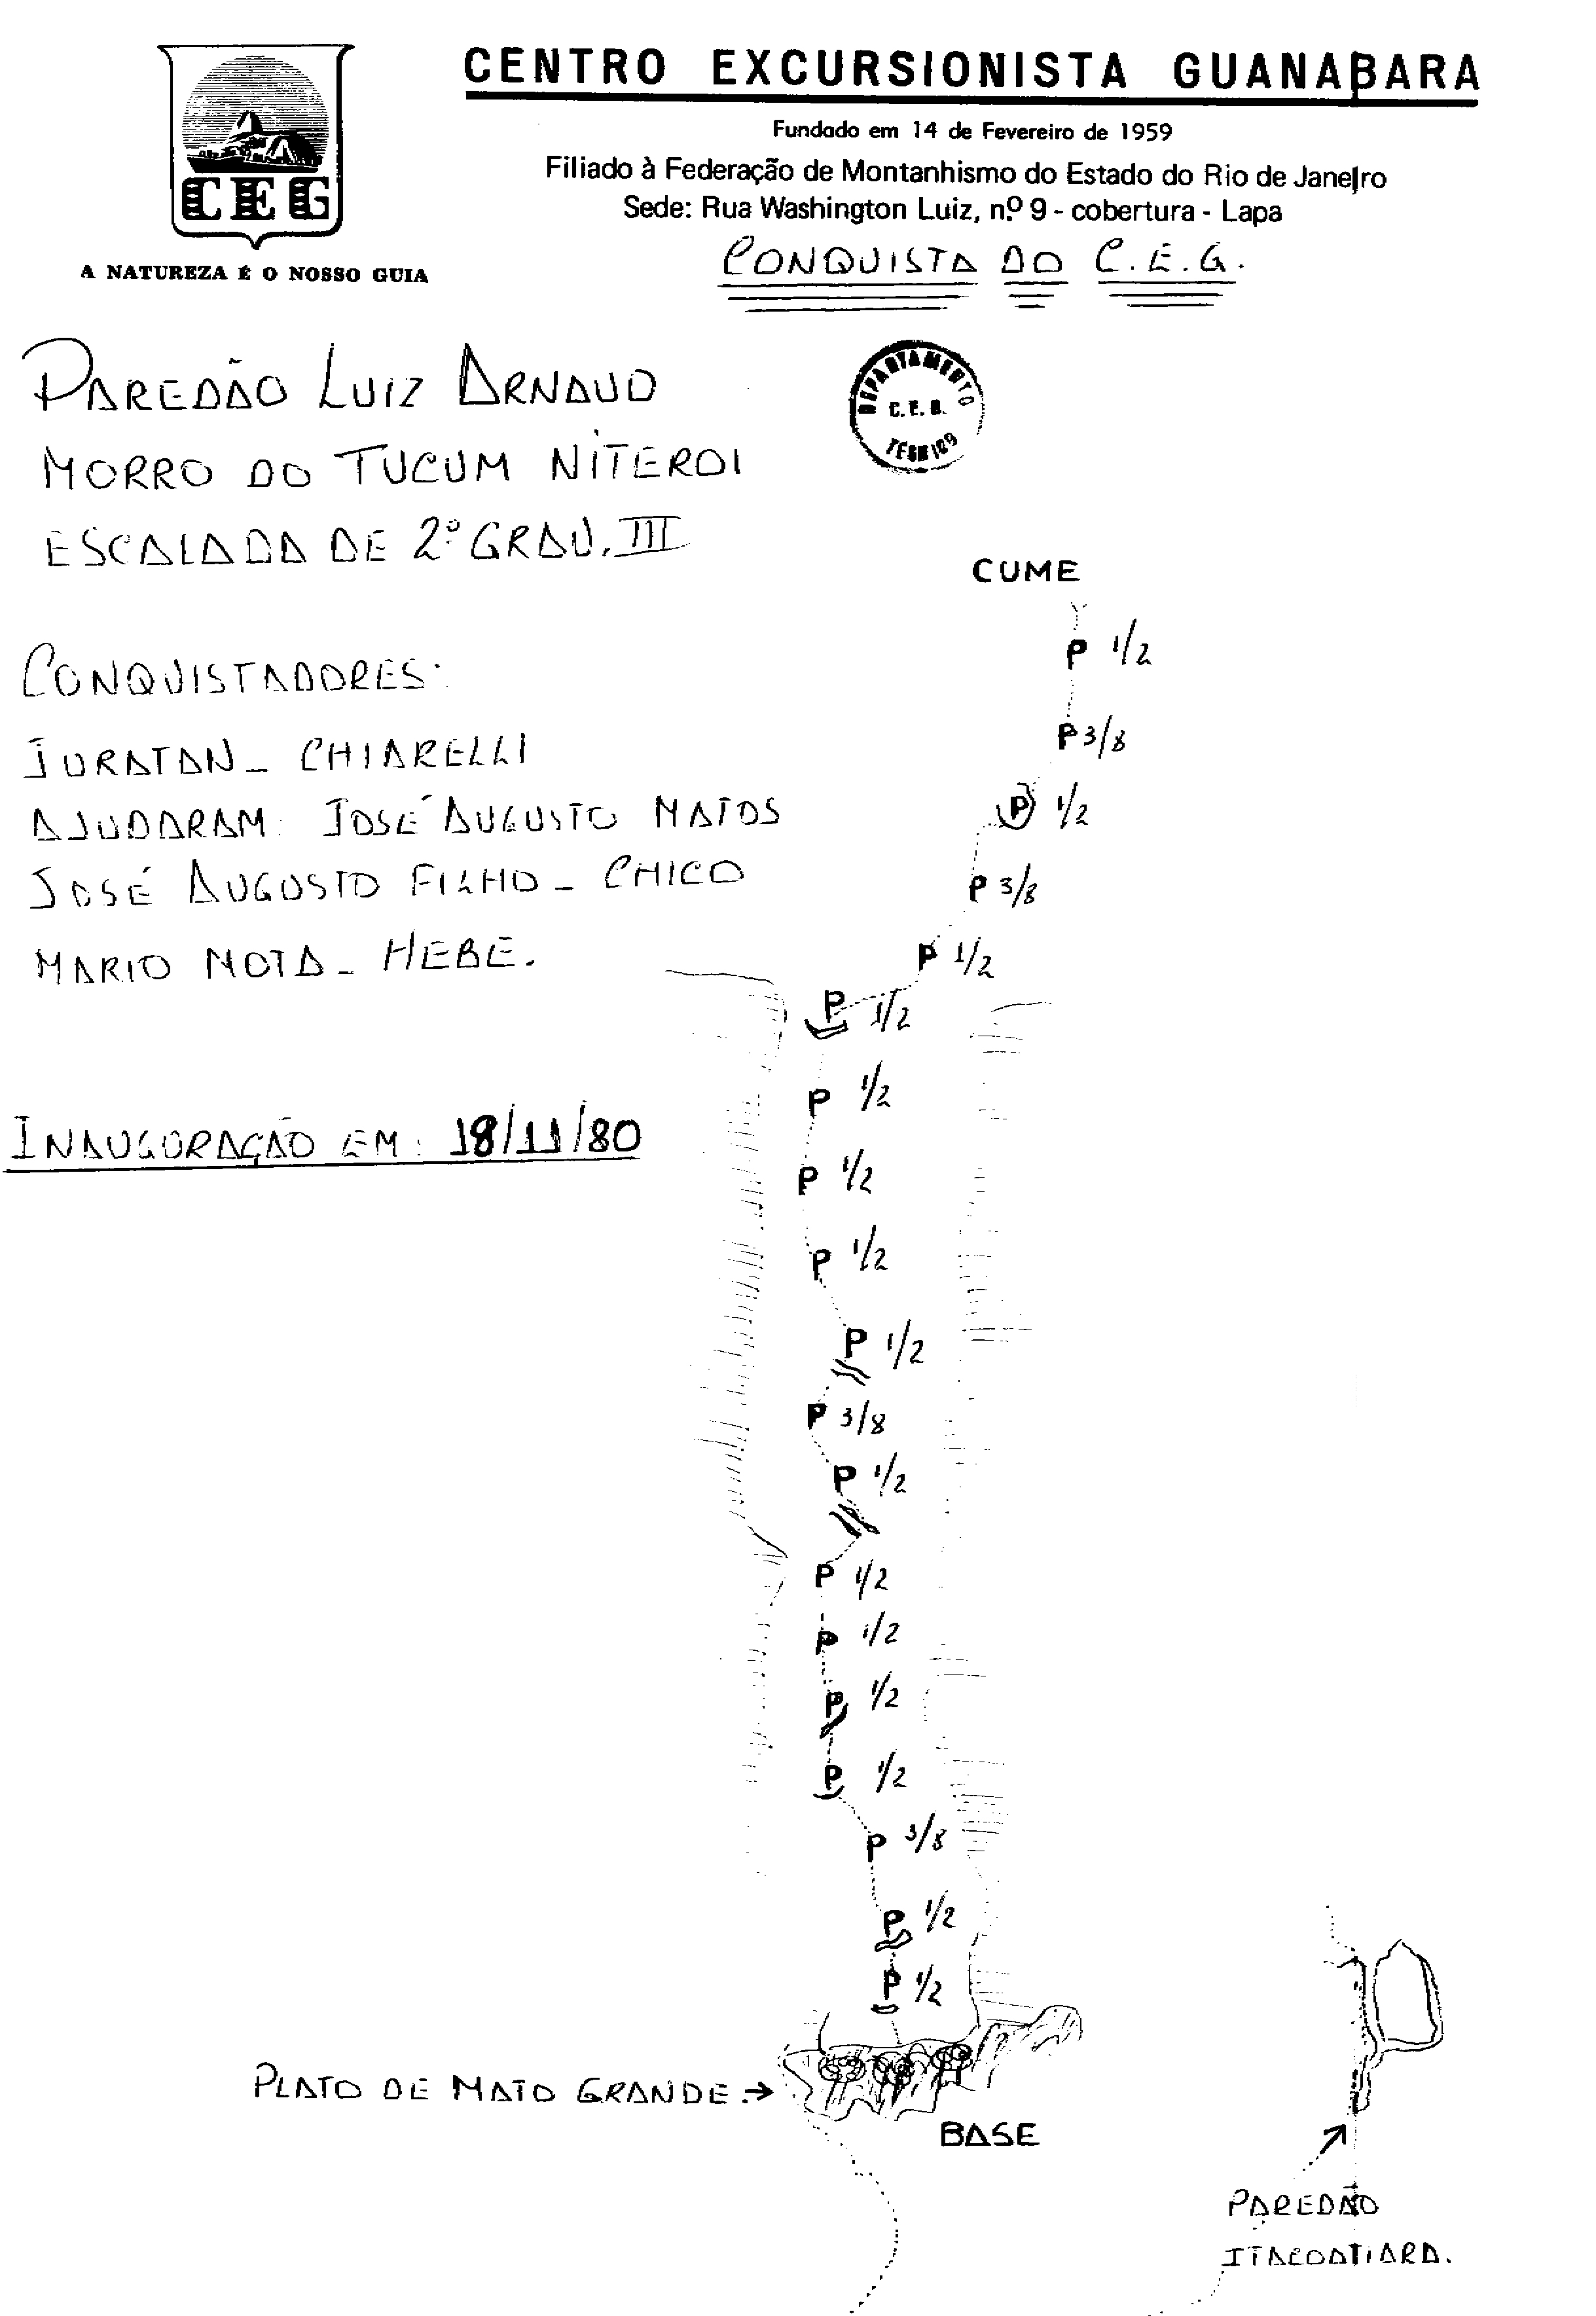 CENTRO EXCURSIONISTA GUANABARA
Fundado em 14 de Fevereiro de 1959
Filiado à Federação de Montanhismo do Estado do Rio de Janeiro
Sede: Rua Washington Luiz, n.º 9 - cobertura - Lapa
CEG
A NATUREZA É O NOSSO GUIA
CONQUISTA DO C.E.G.
PAREDÃO LUIZ ARNAUD
MORRO DO TUCUM NITEROI
ESCALADA DE 2º GRAU. III
DEPARTAMENTO
C.E.G.
TÉCNICO
CONQUISTADORES:
JURATAN - CHIARELLI
AJUDARAM: JOSÉ AUGUSTO MATOS
JOSÉ AUGUSTO FILHO - CHICO
MARIO MOTA - HEBE.
INAUGURAÇÃO EM: 18/11/80
CUME
P 1/2
P 3/8
P 1/2
P 3/8
P 1/2
P 1/2
P 1/2
P 1/2
P 1/2
P 1/2
P 3/8
P 1/2
P 1/2
P 1/2
P 1/2
P 1/2
P 3/8
P 1/2
P 1/2
PLATO DE MATO GRANDE →
BASE
PAREDÃO
ITACOATIARA.